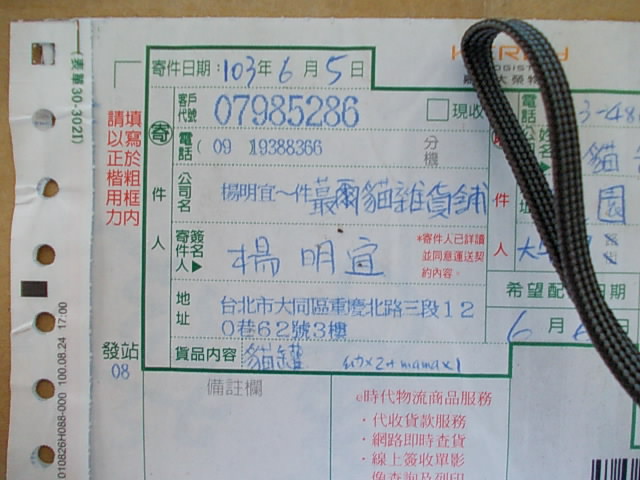 (表單30-302I)
寄件日期:103年6月5日
客戶代號 07985286 現收
電話( 09 19388366 分機
公司名 楊明宜~件 蕞爾貓雜貨舖
寄件人 簽名 楊明宜
*寄件人已詳讀
並同意運送契
約內容。
地址 台北市大同區重慶北路三段12
0巷62號3樓
貨品內容 貓罐
寄件人
填寫於粗框內
請以正楷用力
發站
08
備註欄
010826H088-000 100.08.24 17:00
電話 3-48
貓
件人
園
希望配 日期
6月
e時代物流商品服務
·代收貨款服務
·網路即時查貨
·線上簽收單影
像查詢及列印